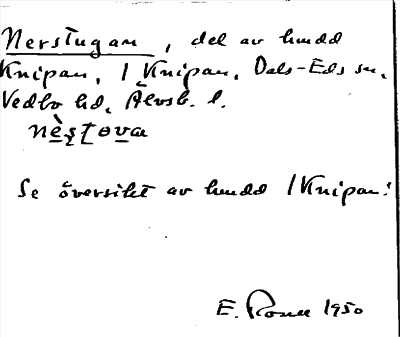 Nerstugan, del av hmdd
Knipan, 1 Knipan, Dals-Eds sn,
Vedbo hd, Älvsb. l.
nèstova
Se översikt av hmdd 1 Knipan!
E. 1950